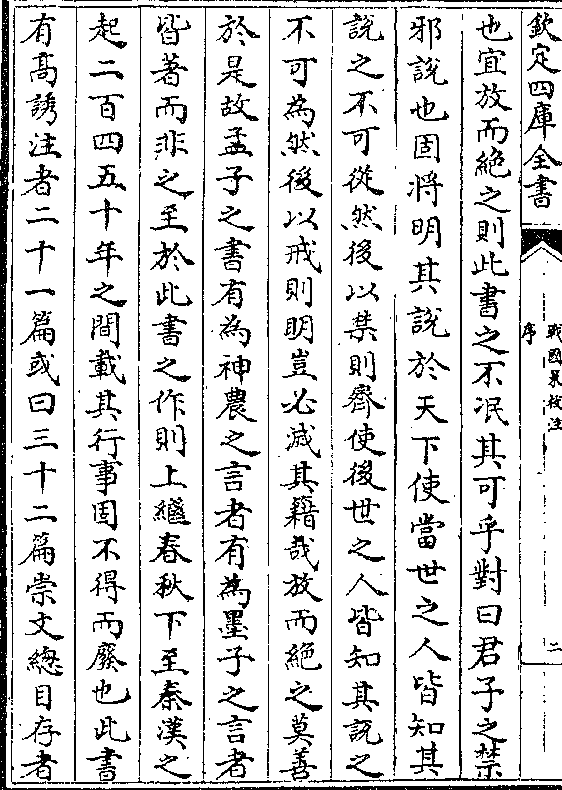 欽定四庫全書
戰國策校注
序
二
也宜放而絶之則此書之不泯其可乎對曰君子之禁
邪說也固將明其說於天下使當世之人皆知其
說之不可從然後以禁則齊使後世之人皆知其說之
不可為然後以戒則明豈必滅其籍哉放而絶之莫善
於是故孟子之書有為神農之言者有為墨子之言者
皆著而非之至於此書之作則上繼春秋下至秦漢之
起二百四五十年之間載其行事固不得而廢也此書
有髙誘注者二十一篇或曰三十二篇崇文總目存者